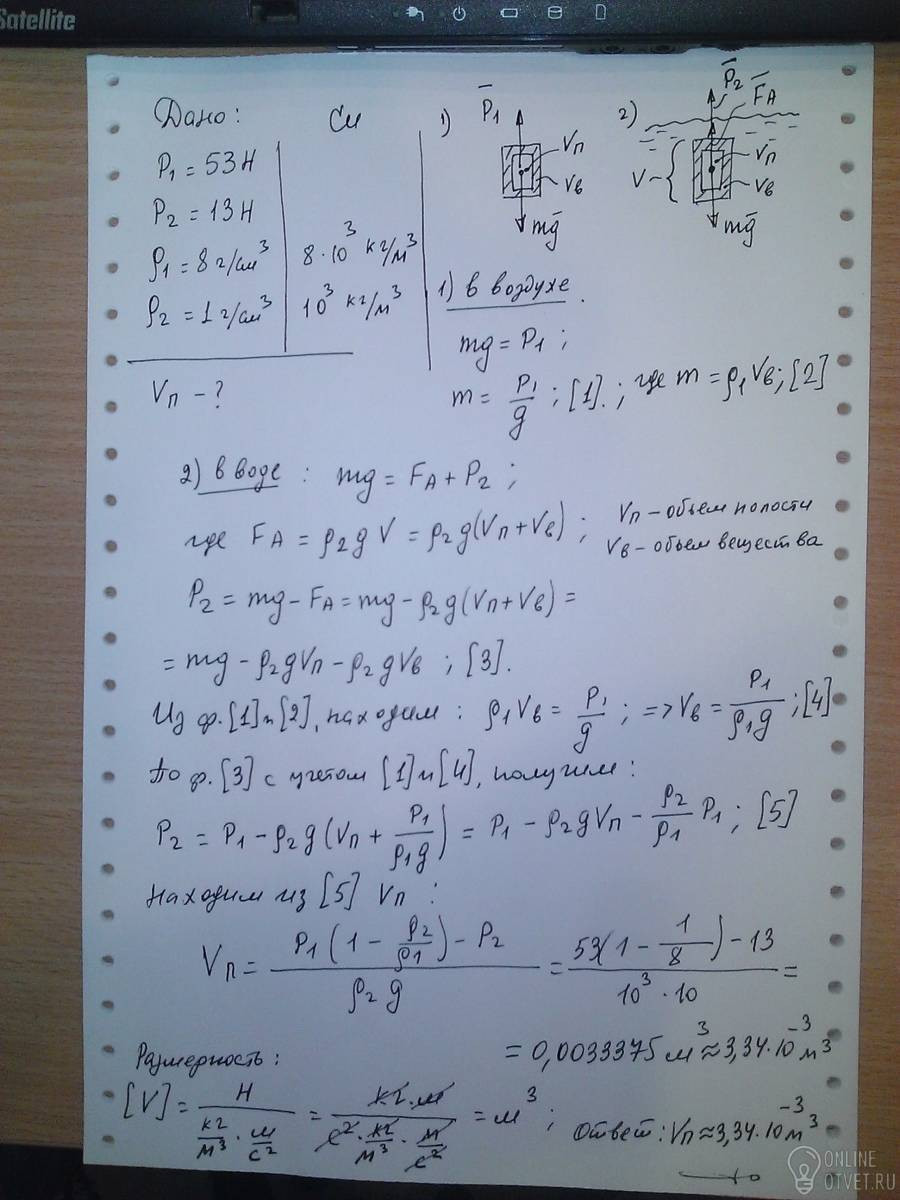 Satellite
Дано:
Си
P₁ = 53 Н
P₂ = 13 Н
ρ₁ = 8 г/см³
8·10³ кг/м³
ρ₂ = 1 г/см³
10³ кг/м³
Vп - ?
1)
P̄₁
Vп
Vв
mḡ
2)
P̄₂
F̄A
V
Vп
Vв
mḡ
1) в воздухе.
mg = P₁ ;
m = P₁/g ; [1]. ; где m = ρ₁Vв; [2]
2) в воде : mg = FA + P₂ ;
где FA = ρ₂gV = ρ₂g(Vп+Vв) ;
Vп – объем полости
Vв – объем вещества
P₂ = mg – FA = mg – ρ₂g(Vп+Vв) =
= mg – ρ₂gVп – ρ₂gVв ; [3].
Из ф. [1] и [2], находим : ρ₁Vв = P₁/g ; => Vв = P₁/(ρ₁g) ; [4]
По ф. [3] с учетом [1] и [4], получим :
P₂ = P₁ – ρ₂g(Vп + P₁/(ρ₁g)) = P₁ – ρ₂gVп – ρ₂/ρ₁ P₁ ; [5]
Находим из [5] Vп :
Vп = (P₁(1 – ρ₂/ρ₁) – P₂)/(ρ₂g) = (53(1 – 1/8) – 13)/(10³·10) =
= 0,0033375 м³ ≈ 3,34·10⁻³ м³
Размерность :
[V] = Н/(кг/м³ · м/с²) = кг·м/(с²·кг/м³·м/с²) = м³ ;
Ответ : Vп ≈ 3,34·10⁻³ м³
ONLINE
OTVET.RU